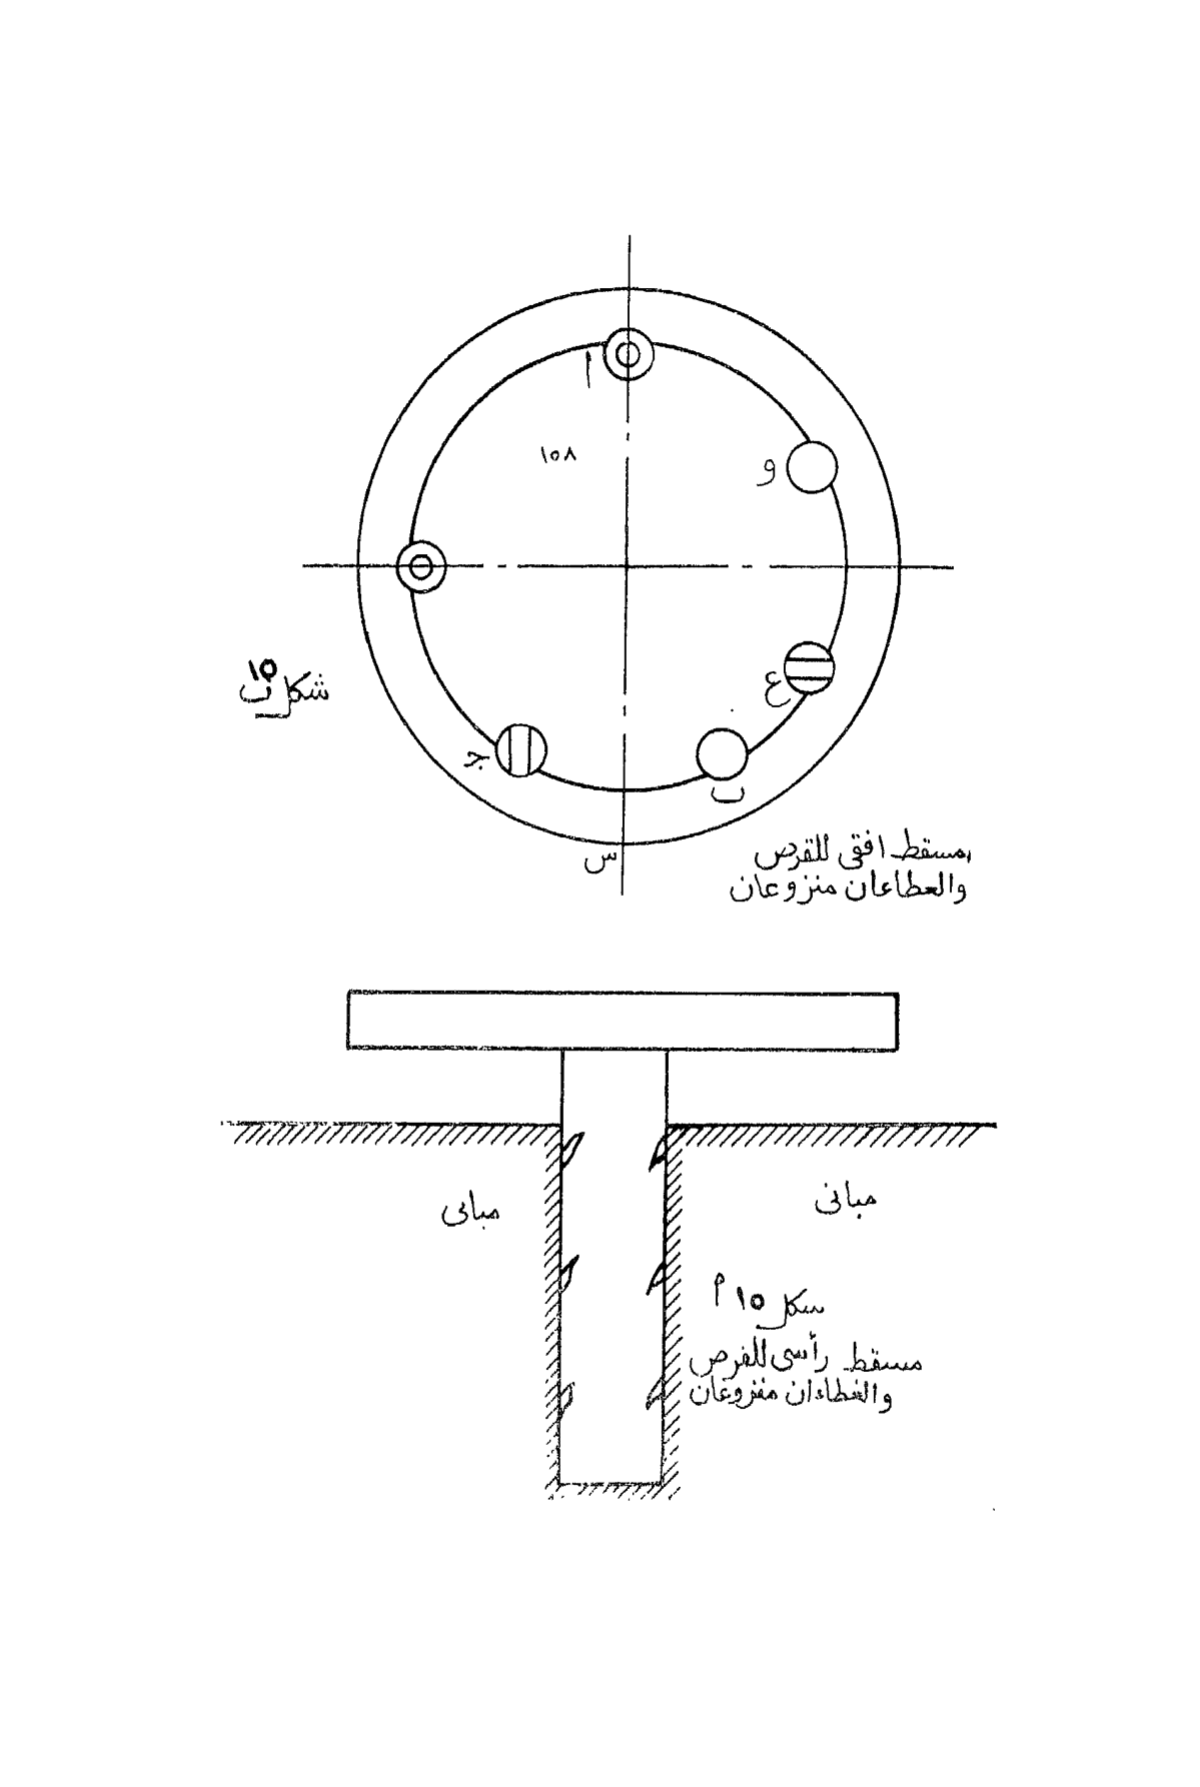 أ
١٥٨
و
شكل ١٥ ب
ع
ج
ب
س
مسقط افقى للقرص
والعطاعان منزوعان
مبانى
مبانى
شكل ١٥ أ
مسقط رأسى للقرص
والغطاءان منزوعان